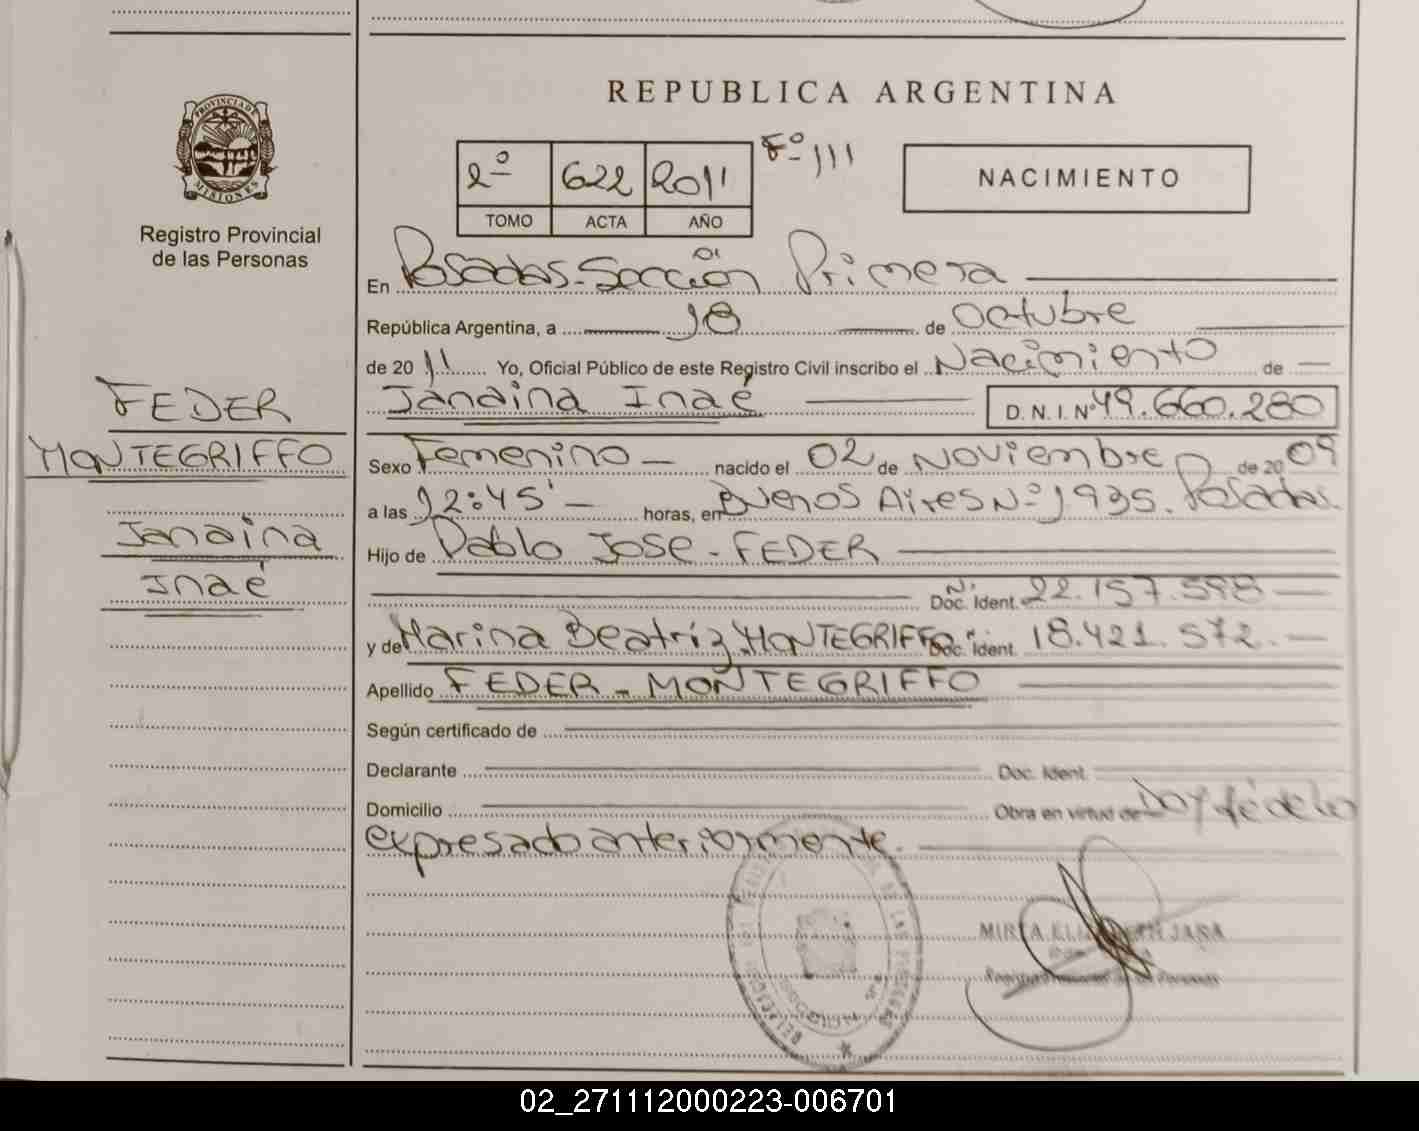 PROVINCIA DE
MISIONES
Registro Provincial
de las Personas
FEDER
MONTEGRIFFO
Janaina
Inaé
REPUBLICA ARGENTINA
2º 622 2011 Fº 111
TOMO ACTA AÑO
NACIMIENTO
En Posadas-Sección Primera
República Argentina, a 18 de Octubre
de 2011 Yo, Oficial Público de este Registro Civil inscribo el Nacimiento de
Janaina Inaé D.N.I.Nº 49.660.280
Sexo Femenino nacido el 02 de Noviembre de 2009
a las 12:45' horas, en Buenos Aires Nº 1935. Posadas
Hijo de Pablo Jose - FEDER
Nº Doc. Ident. 22.157.598
y de Marina Beatríz MONTEGRIFFO Doc. Ident. 18.421.572.
Apellido FEDER - MONTEGRIFFO
Según certificado de
Declarante Doc. Ident.
Domicilio Obra en virtud de Doy fé de lo
expresado anteriormente.
DE LAS PERSONAS
MIRTA JARA
02_271112000223-006701